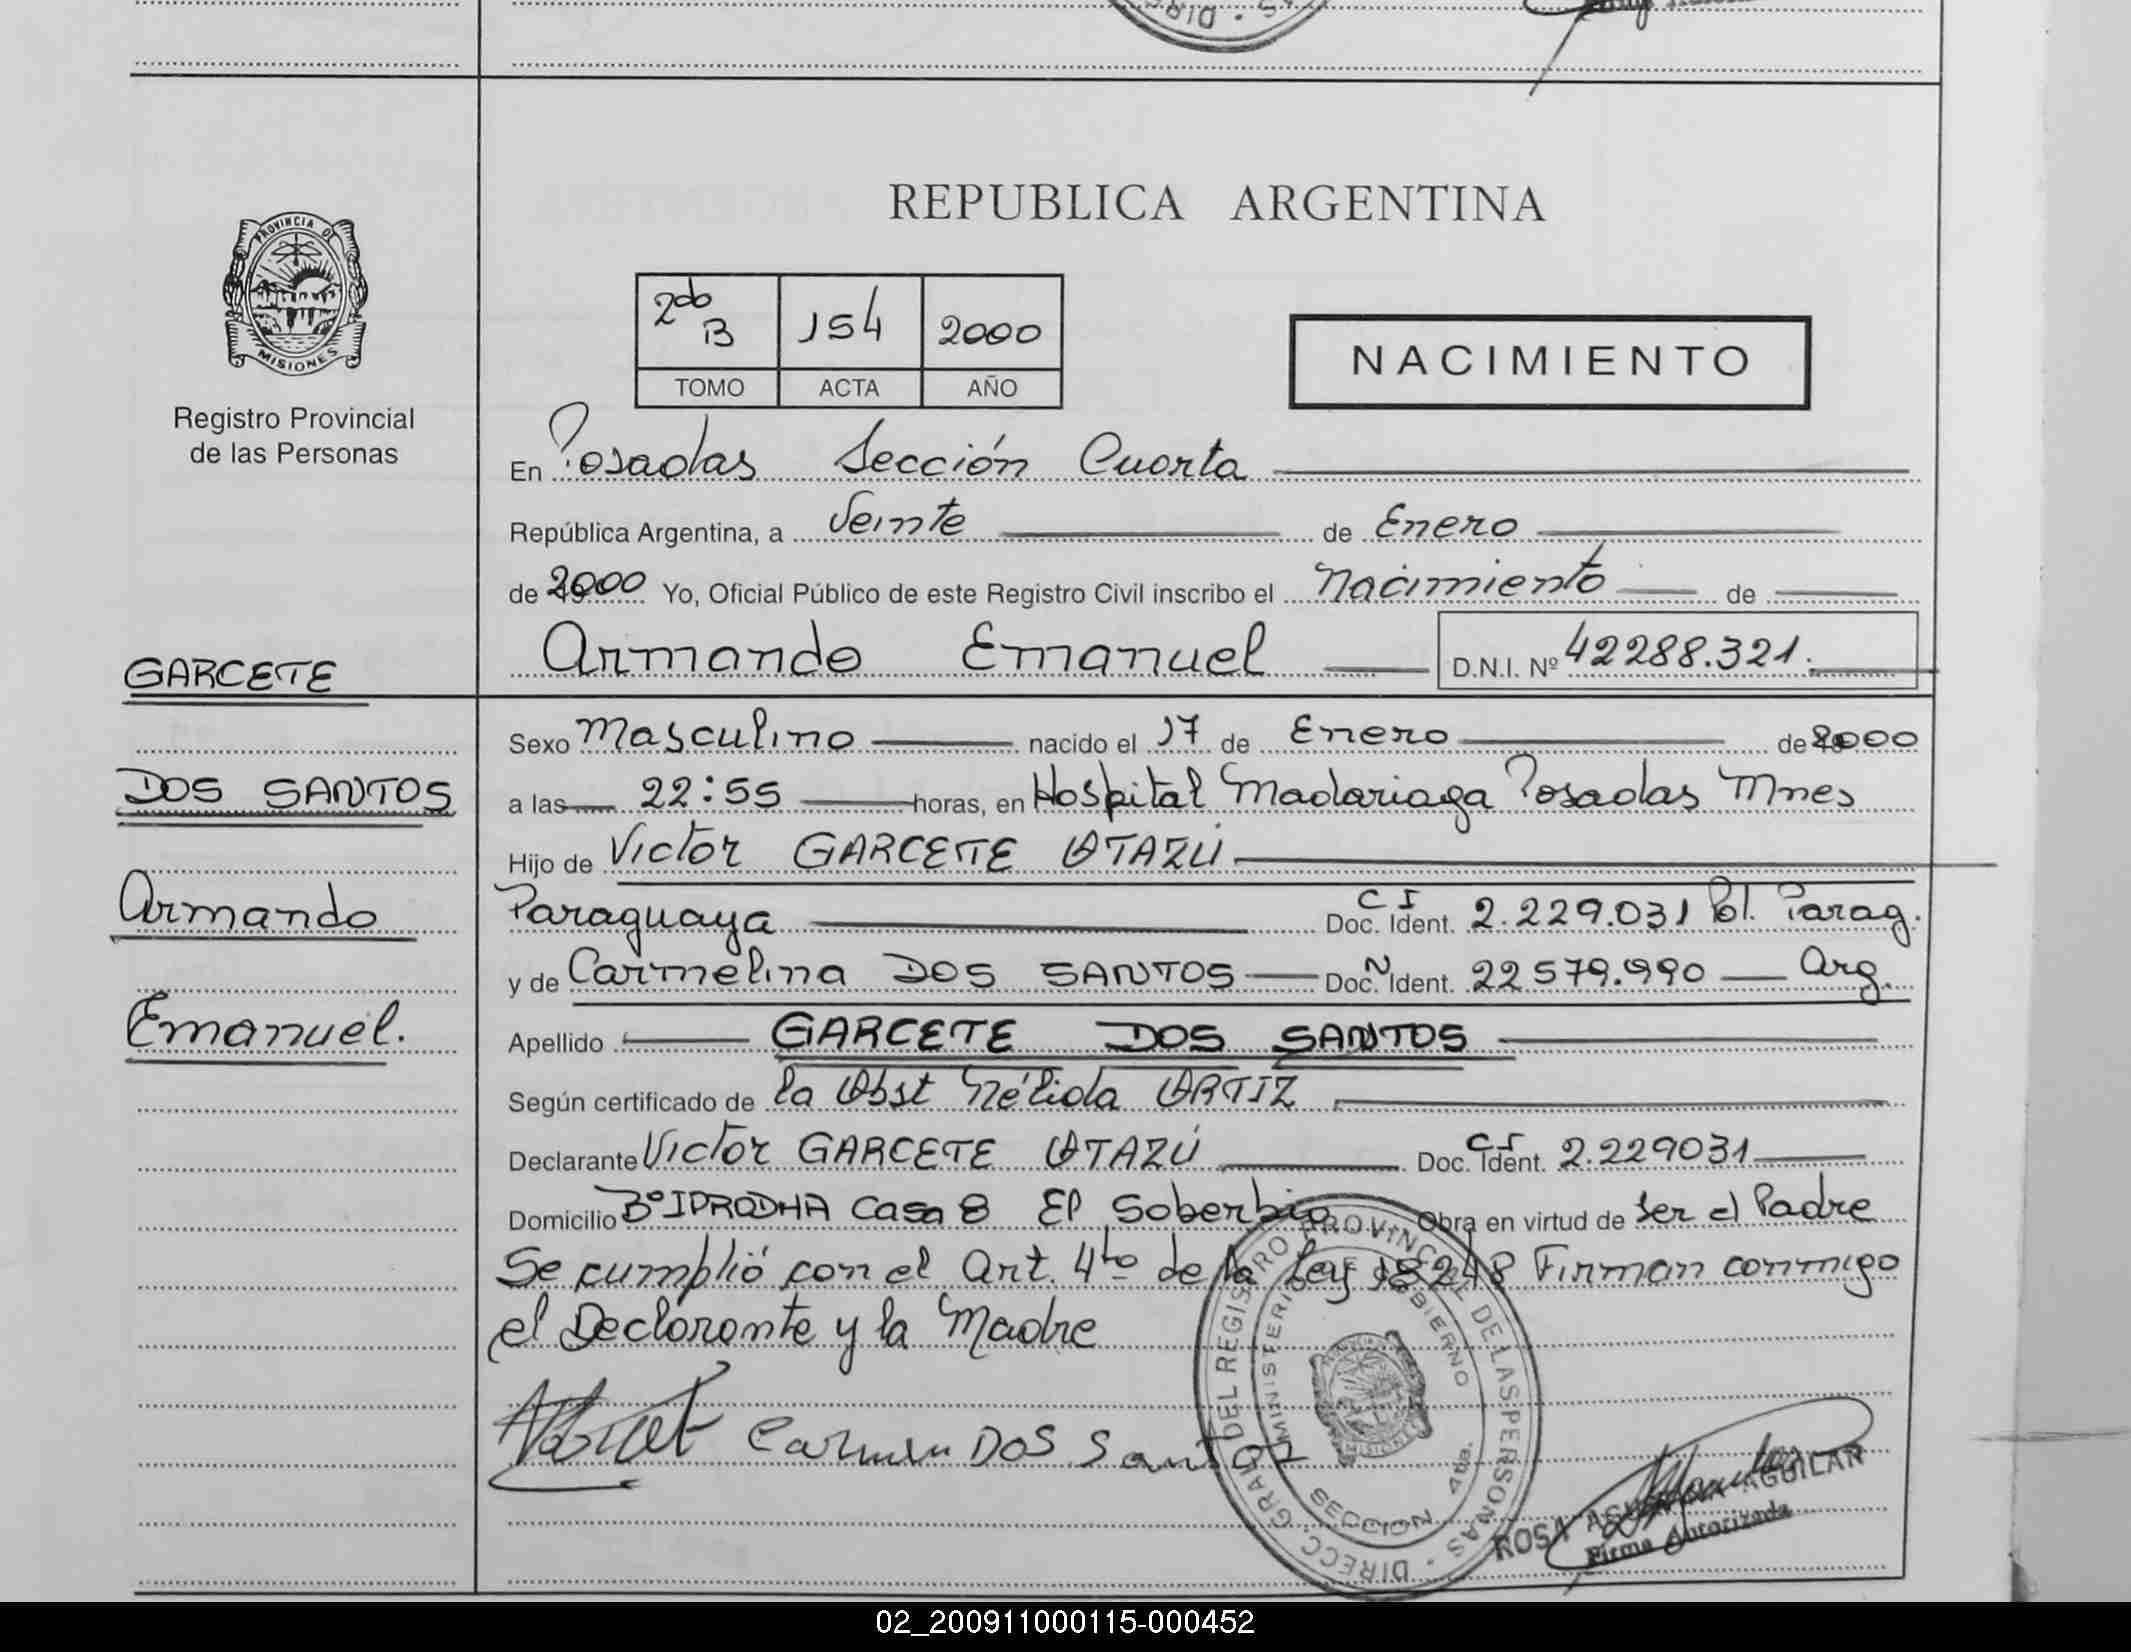 REPUBLICA ARGENTINA
PROVINCIA DE
MISIONES
Registro Provincial
de las Personas
2do B 154 2000
TOMO ACTA AÑO
NACIMIENTO
En Posadas Sección Cuarta
República Argentina, a Veinte de Enero
de 2000 Yo, Oficial Público de este Registro Civil inscribo el Nacimiento de
Armando Emanuel D.N.I. Nº 42288.321.
GARCETE
DOS SANTOS
Armando
Emanuel.
Sexo Masculino nacido el 17 de Enero de 2000
a las 22:55 horas, en Hospital Madariaga Posadas Mnes
Hijo de Victor GARCETE OTAZÚ
Paraguaya C I Doc. Ident. 2.229.031 Pol. Parag.
y de Carmelina DOS SANTOS Doc. N Ident. 22579.990 Arg.
Apellido GARCETE DOS SANTOS
Según certificado de la Obst Nélida ORTIZ
Declarante Victor GARCETE OTAZÚ C I Doc. Ident. 2.229031
Domicilio Bº IPRODHA Casa 8 El Soberbio Obra en virtud de ser el Padre
Se cumplió con el Art. 4to de la Ley 18248 Firman conmigo
el Declarante y la Madre
Carmen DOS Santos
DIRECC GRAL DEL REGISTRO PROVINCIAL DE LAS PERSONAS
MINISTERIO DE GOBIERNO
MISIONES
SECCION 4ta.
ROSA AGUILAR
Firma Autorizada
02_200911000115-000452